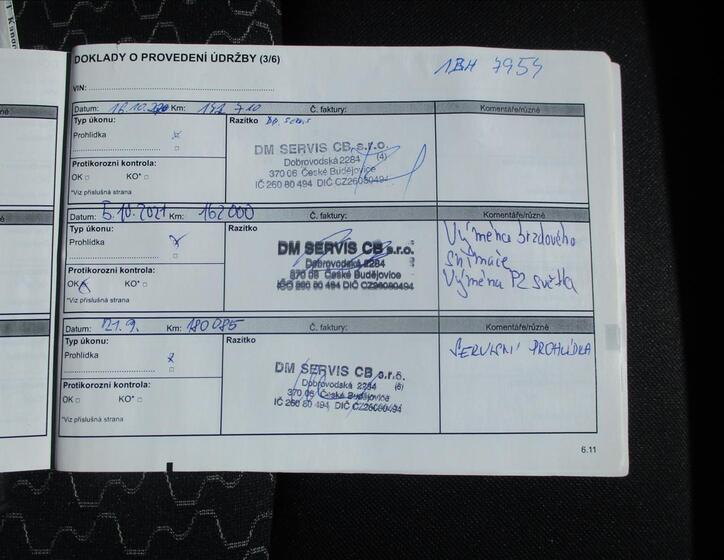 DOKLADY O PROVEDENÍ ÚDRŽBY (3/6)
1BH 7954
VIN:
Datum: 12.10.2020 Km: 142 710 Č. faktury: Komentáře/různé
Typ úkonu: Razítko
Prohlídka
DM SERVIS CB s.r.o.
Dobrovodská 2284 (4)
370 06 České Budějovice
IČ 260 80 494 DIČ CZ26080494
Protikorozní kontrola:
OK □ KO* □
*Viz příslušná strana
Datum: 5.10.2021 Km: 162000 Č. faktury: Komentáře/různé
Typ úkonu: Razítko
Prohlídka x
DM SERVIS CB s.r.o.
Dobrovodská 2284
370 06 České Budějovice
IČO 260 80 494 DIČ CZ26080494
Výměna brzdového
snímače
Výměna PZ světla
Protikorozní kontrola:
OK x KO* □
*Viz příslušná strana
Datum: 21.9. Km: 180085 Č. faktury: Komentáře/různé
Typ úkonu: Razítko
Prohlídka x
DM SERVIS CB s.r.o.
Dobrovodská 2284 (6)
370 06 České Budějovice
IČ 260 80 494 DIČ CZ26080494
SERVISNÍ PROHLÍDKA
Protikorozní kontrola:
OK □ KO* □
*Viz příslušná strana
6.11